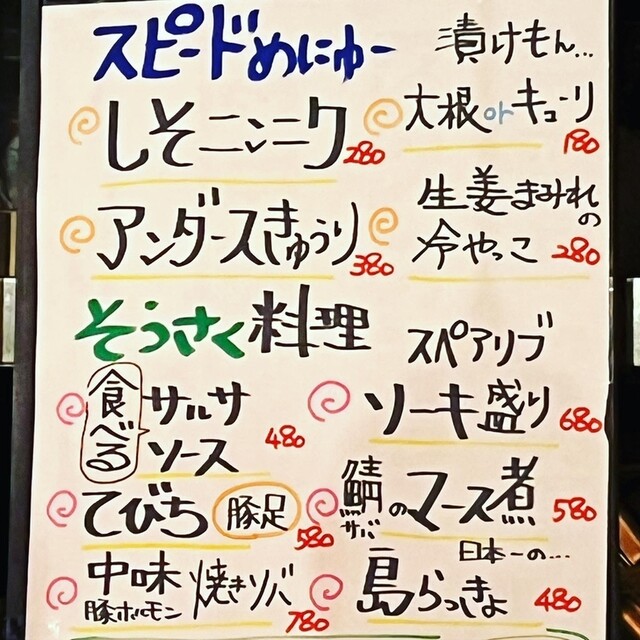 スピードめにゅー
しそニンニク 280
アンダースきゅうり 380
漬けもん...
大根orキューリ 180
生姜まみれの
冷やっこ 280
そうさく料理
食べる
サルサ
ソース 480
てびち 豚足 580
中味焼きソバ
豚ホルモン 780
スペアリブ
ソーキ盛り 680
鯖のマース煮 580
サバ
日本一の...
島らっきょ 480